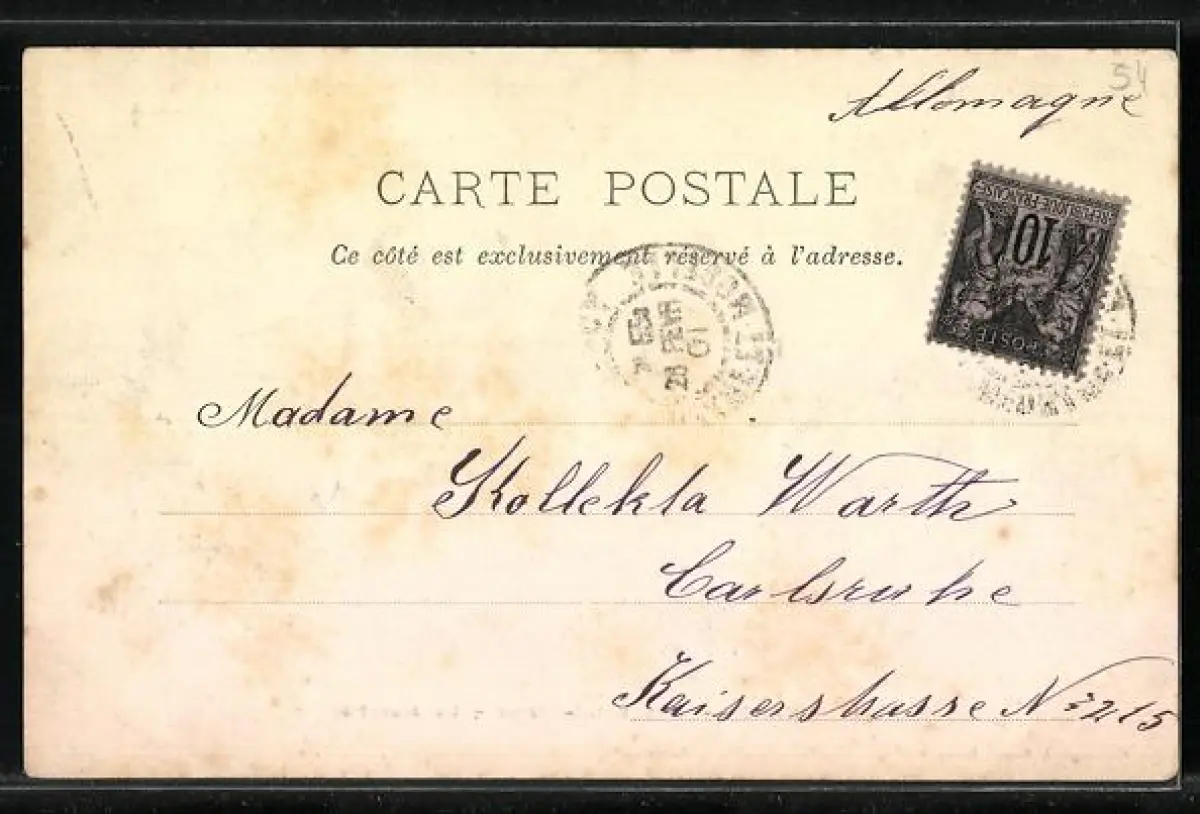 54
Allemagne
CARTE POSTALE
Ce côté est exclusivement réservé à l'adresse.
REPUBLIQUE FRANÇAISE
10
POSTES
28
FEVR
01
Madame
Kollekta Warth
Carlsruhe
Kaiserstrasse No 215